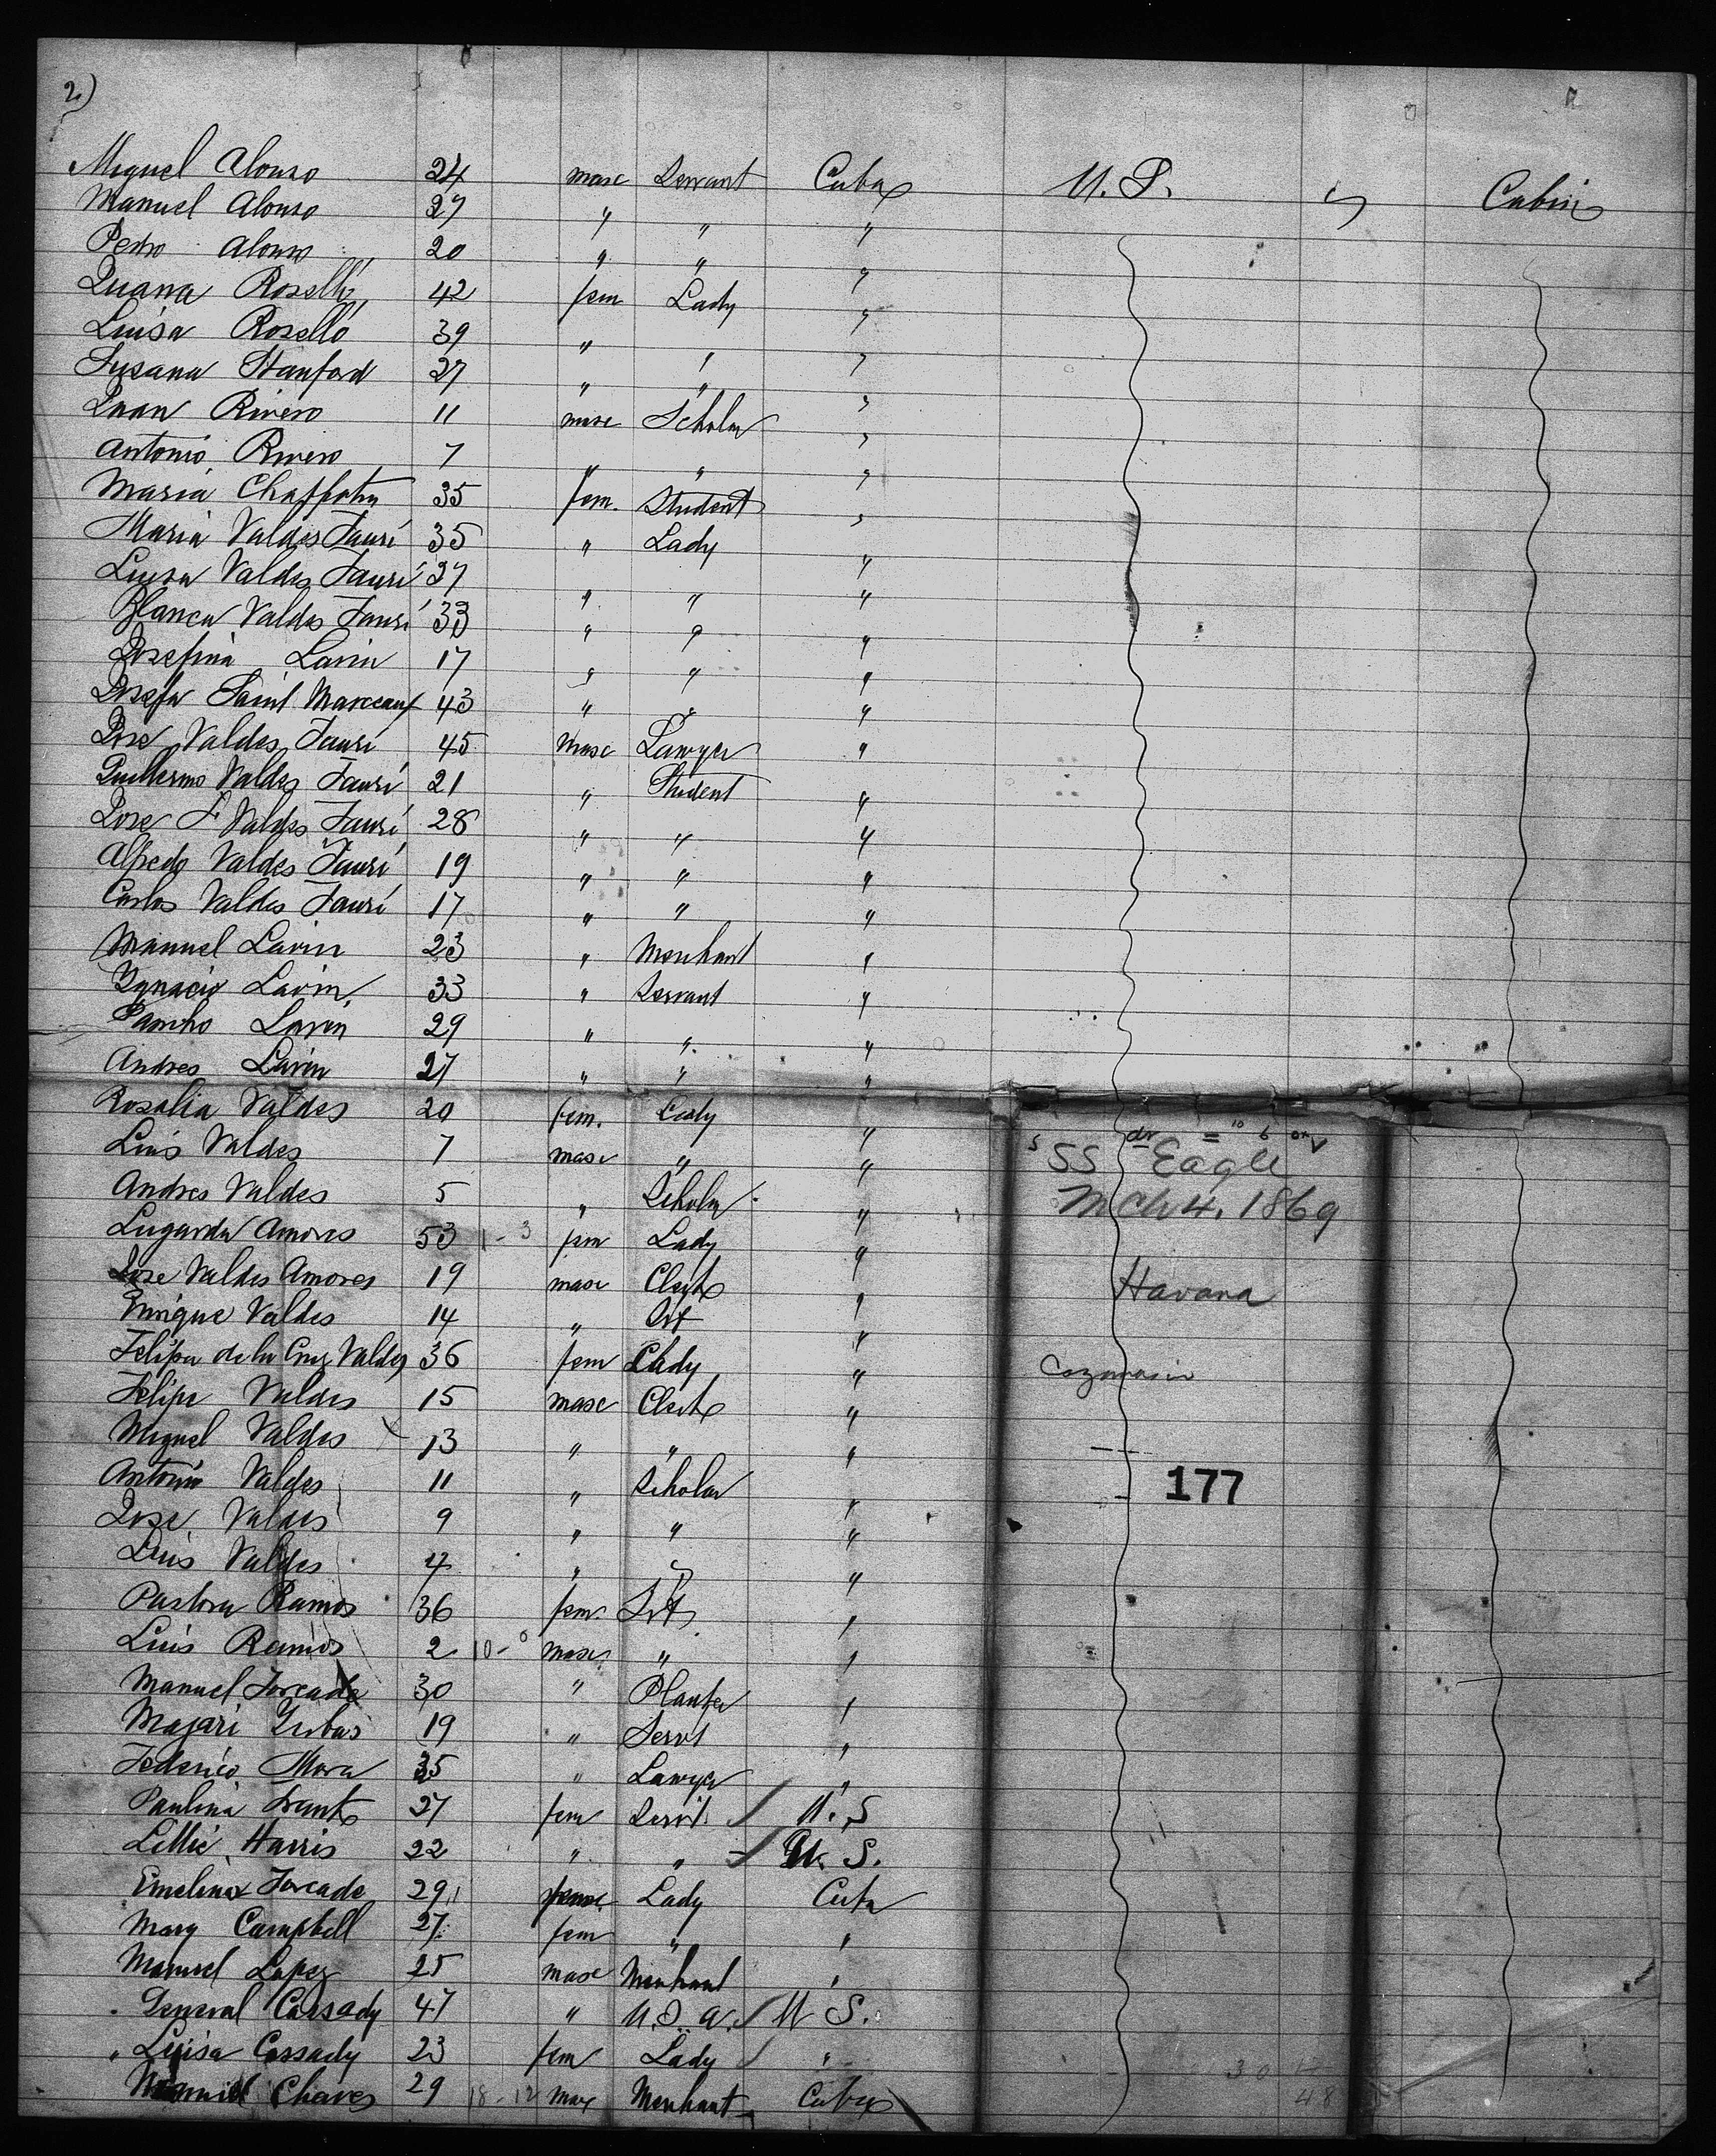 2)
Miguel Alonso 24 masc Servant Cuba U.S. " Cabin
Manuel Alonso 27 " " "
Pedro Alonso 20 " " "
Juana Roselló 42 fem Lady "
Luisa Roselló 39 " " "
Susana Stanford 27 " " "
Juan Rivero 11 masc Scholar "
Antonio Rivero 7 " " "
Maria 35 fem. Student "
Maria Valdes Fauri 35 " Lady "
Luisa Valdes Fauri 27 " " "
Blanca Valdes Fauri 33 " " "
Josefina Lavin 17 " " "
Josefa Saint Marceaux 43 " " "
Jose Valdes Fauri 45 masc Lawyer "
Guillermo Valdes Fauri 21 " Student "
Jose F Valdes Fauri 28 " " "
Alfredo Valdes Fauri 19 " " "
Carlos Valdes Fauri 17 " " "
Manuel Lavin 23 " Merchant "
Ygnacio Lavin, 33 " Servant "
Pancho Lavin 29 " " "
Andres Lavin 27 " " "
Rosalia Valdes 20 fem. Lady "
Luis Valdes 7 masc " " SS Eagle
Andres Valdes 5 " Scholar " Mch 4. 1869
Lugarda Amores 53 1-3 fem Lady "
Jose Valdes Amores 19 masc Clerk " Havana
Enrique Valdes 14 " Svt "
Felipa de la Cruz Valdes 36 fem Lady "
Felipe Valdes 15 masc Clerk "
Miguel Valdes 13 " " "
Antonio Valdes 11 " Scholar " 177
Jose Valdes 9 " " "
Luis Valdes 4 " " "
Pastora Ramos 36 fem. Svt "
Luis Ramos 2 10-0 masc. " "
Manuel Forcade 30 " Planter "
19 " Servt "
Federico Mora 35 " Lawyer "
Paulina 27 fem Servt. U.S
Lillie Harris 22 " " U.S.
Emelina Forcade 29 Lady Cuba
Mary Campbell 27 fem " "
Manuel Lopez 25 masc Merchant "
General Cassady 47 " U.S.A. U S.
" Luisa Cassady 23 fem Lady "
Chaves 29 18-12 masc Merchant Cuba